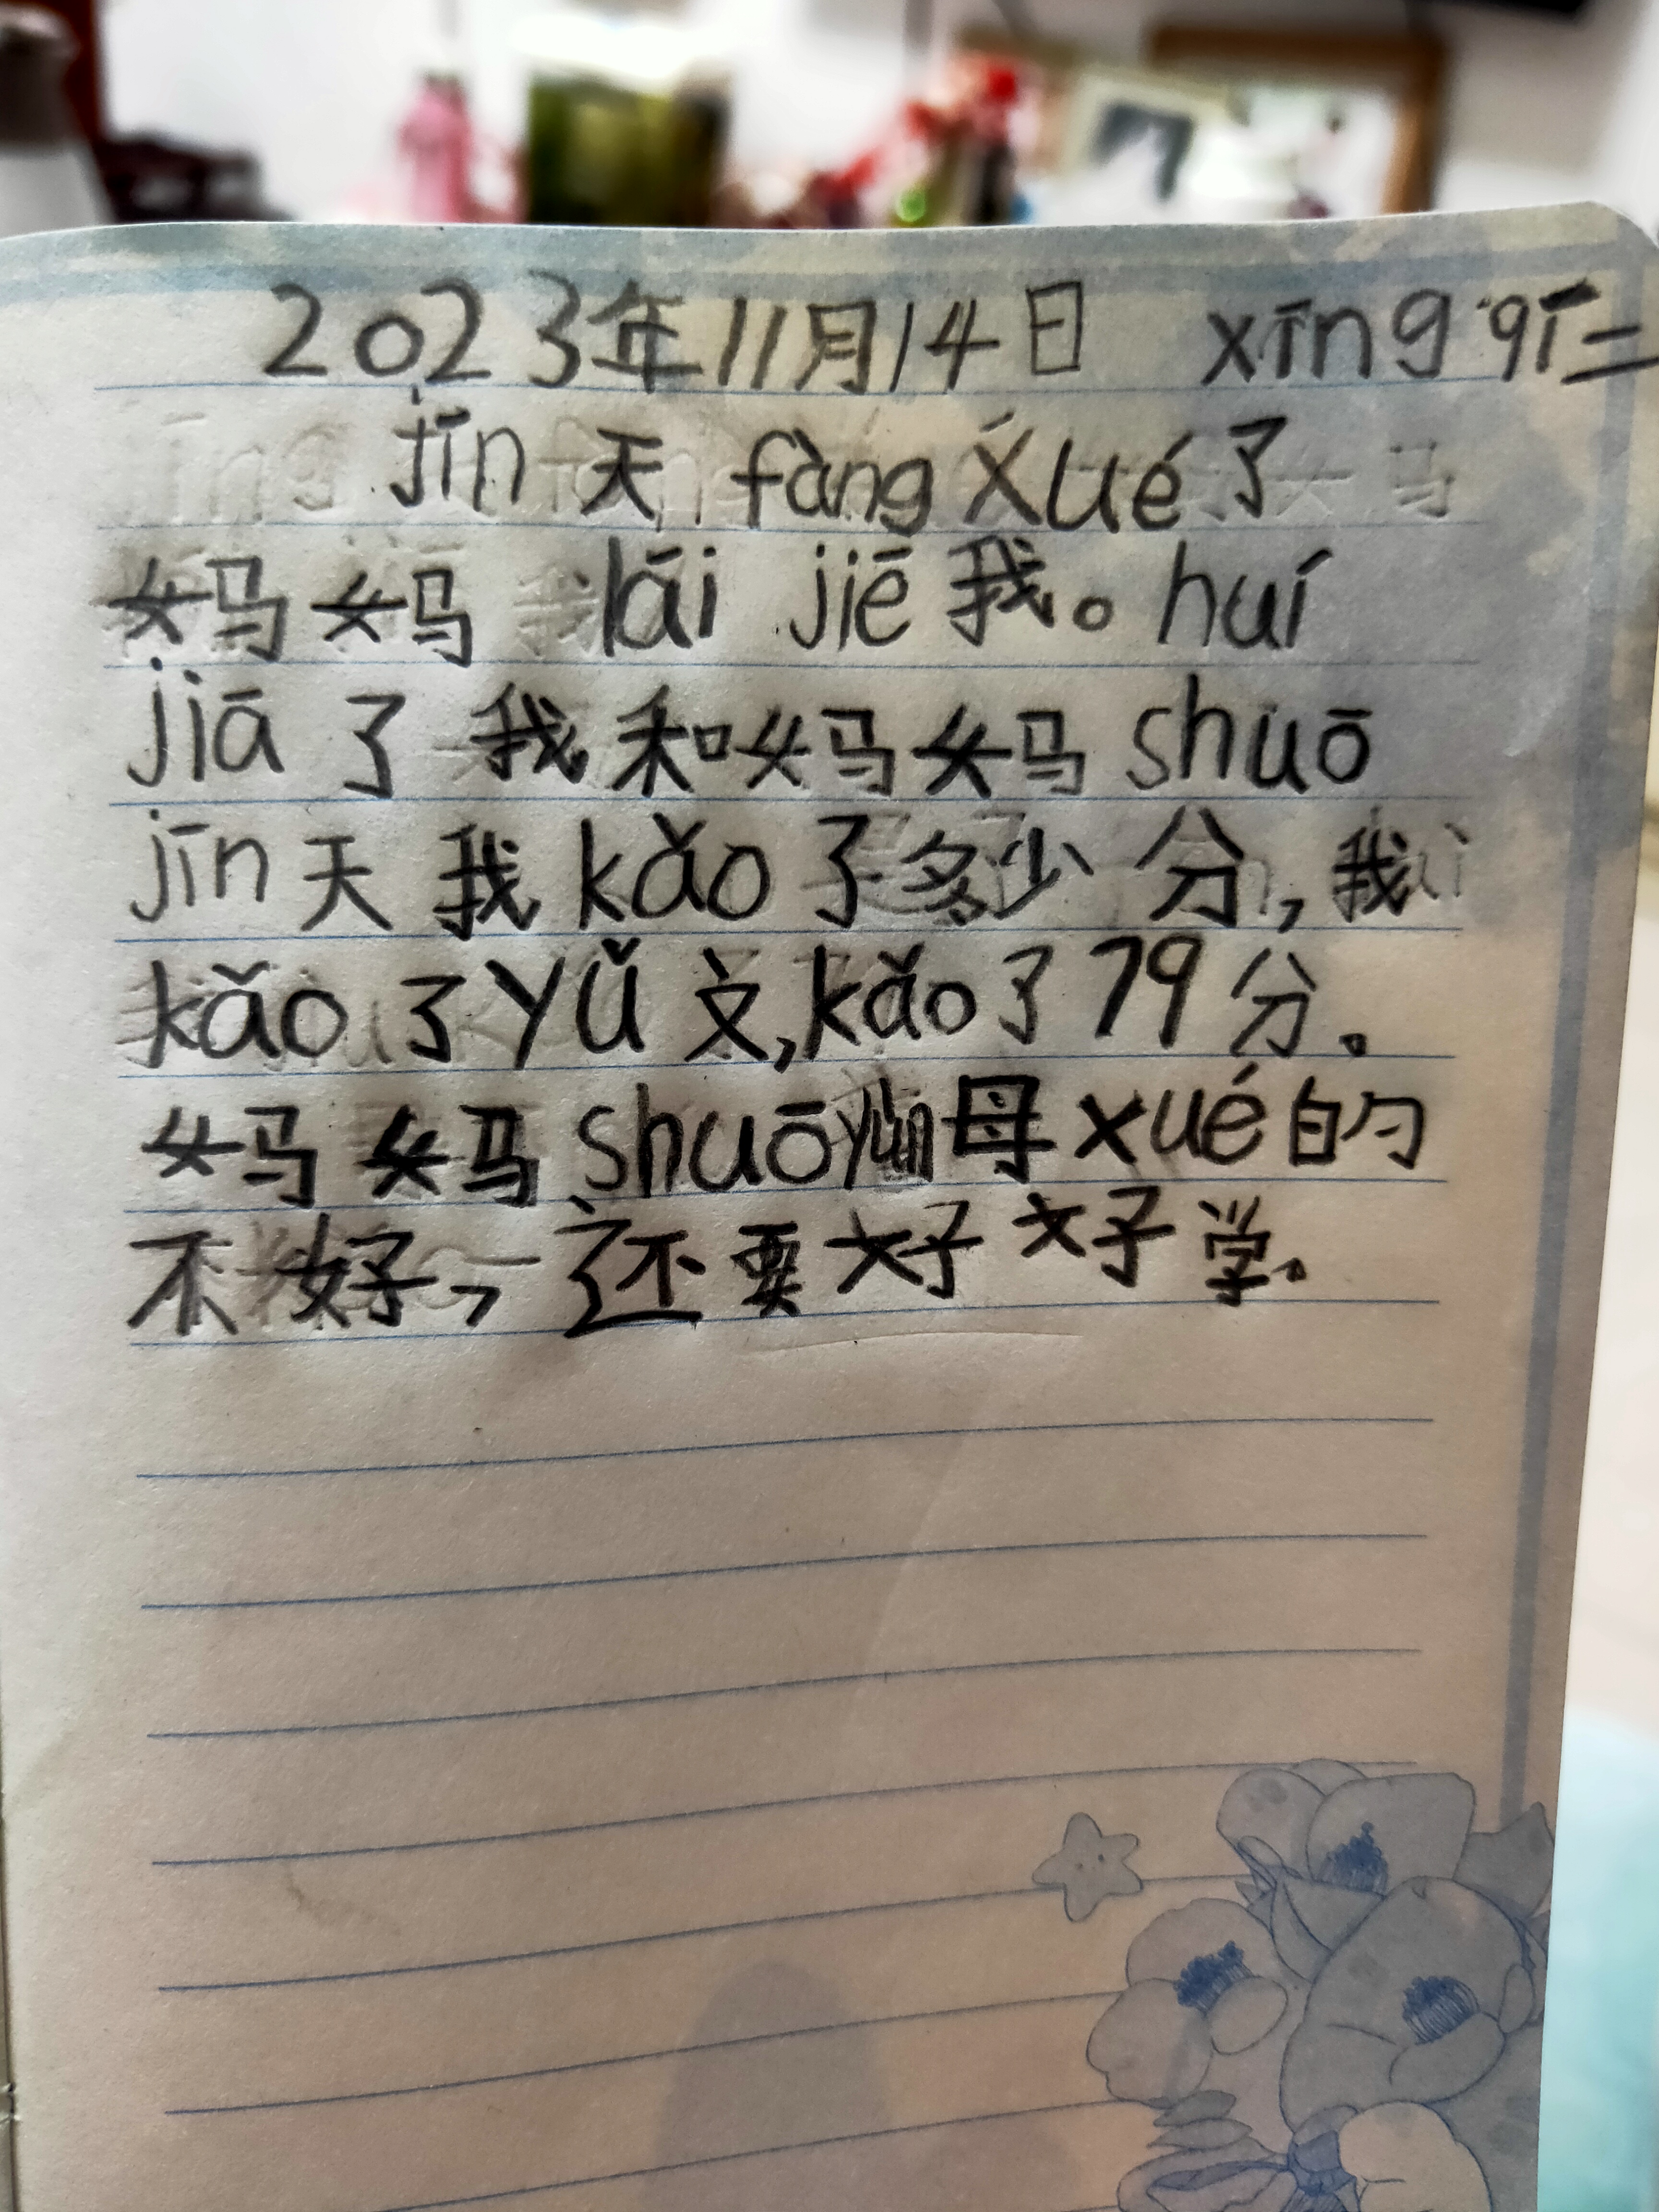 2023年11月14日 xīng qī二
jīn天 fàng xué了
妈妈 lái jiē 我。huí
jiā 了 我和妈妈 shuō
jīn天 我 kǎo 了多少分,我
kǎo 了 yǔ 文,kǎo 了 79 分。
妈妈 shuō yùn 母 xué 的
不好,还要好好学。